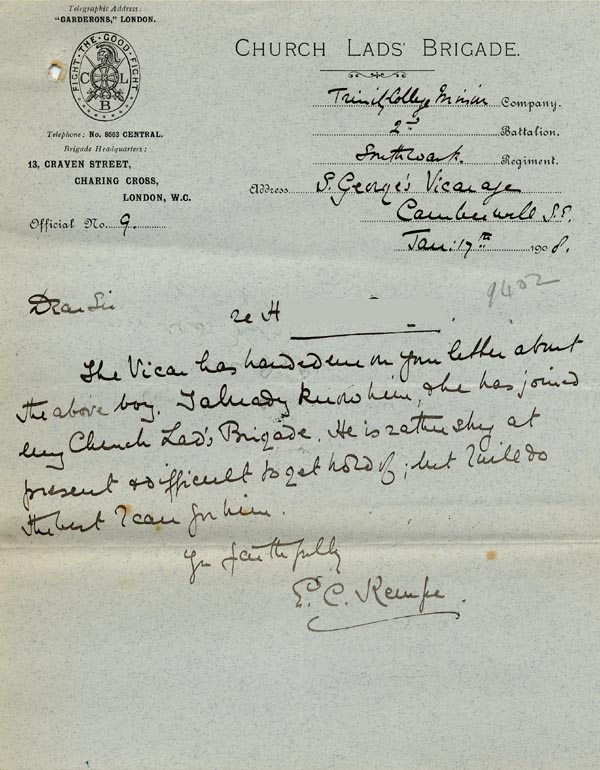 Telegraphic Address:
"GARDERONS," LONDON.
FIGHT·THE·GOOD·FIGHT
C L
B
Telephone: No. 8663 CENTRAL.
Brigade Headquarters:
13, CRAVEN STREET,
CHARING CROSS,
LONDON, W.C.
Official No. 9.
CHURCH LADS' BRIGADE.
Trinity College Mission Company.
2nd Battalion.
Southwark. Regiment.
Address S. George's Vicarage
Camberwell S.E.
Jan: 17th 1908.
9402
Dear Sir
re H
The Vicar has handed me on your letter about
the above boy. I already know him, & he has joined
my Church Lad's Brigade. He is rather shy at
present & difficult to get hold of; but I will do
the best I can for him.
Yrs faithfully
E. C. Kempe.